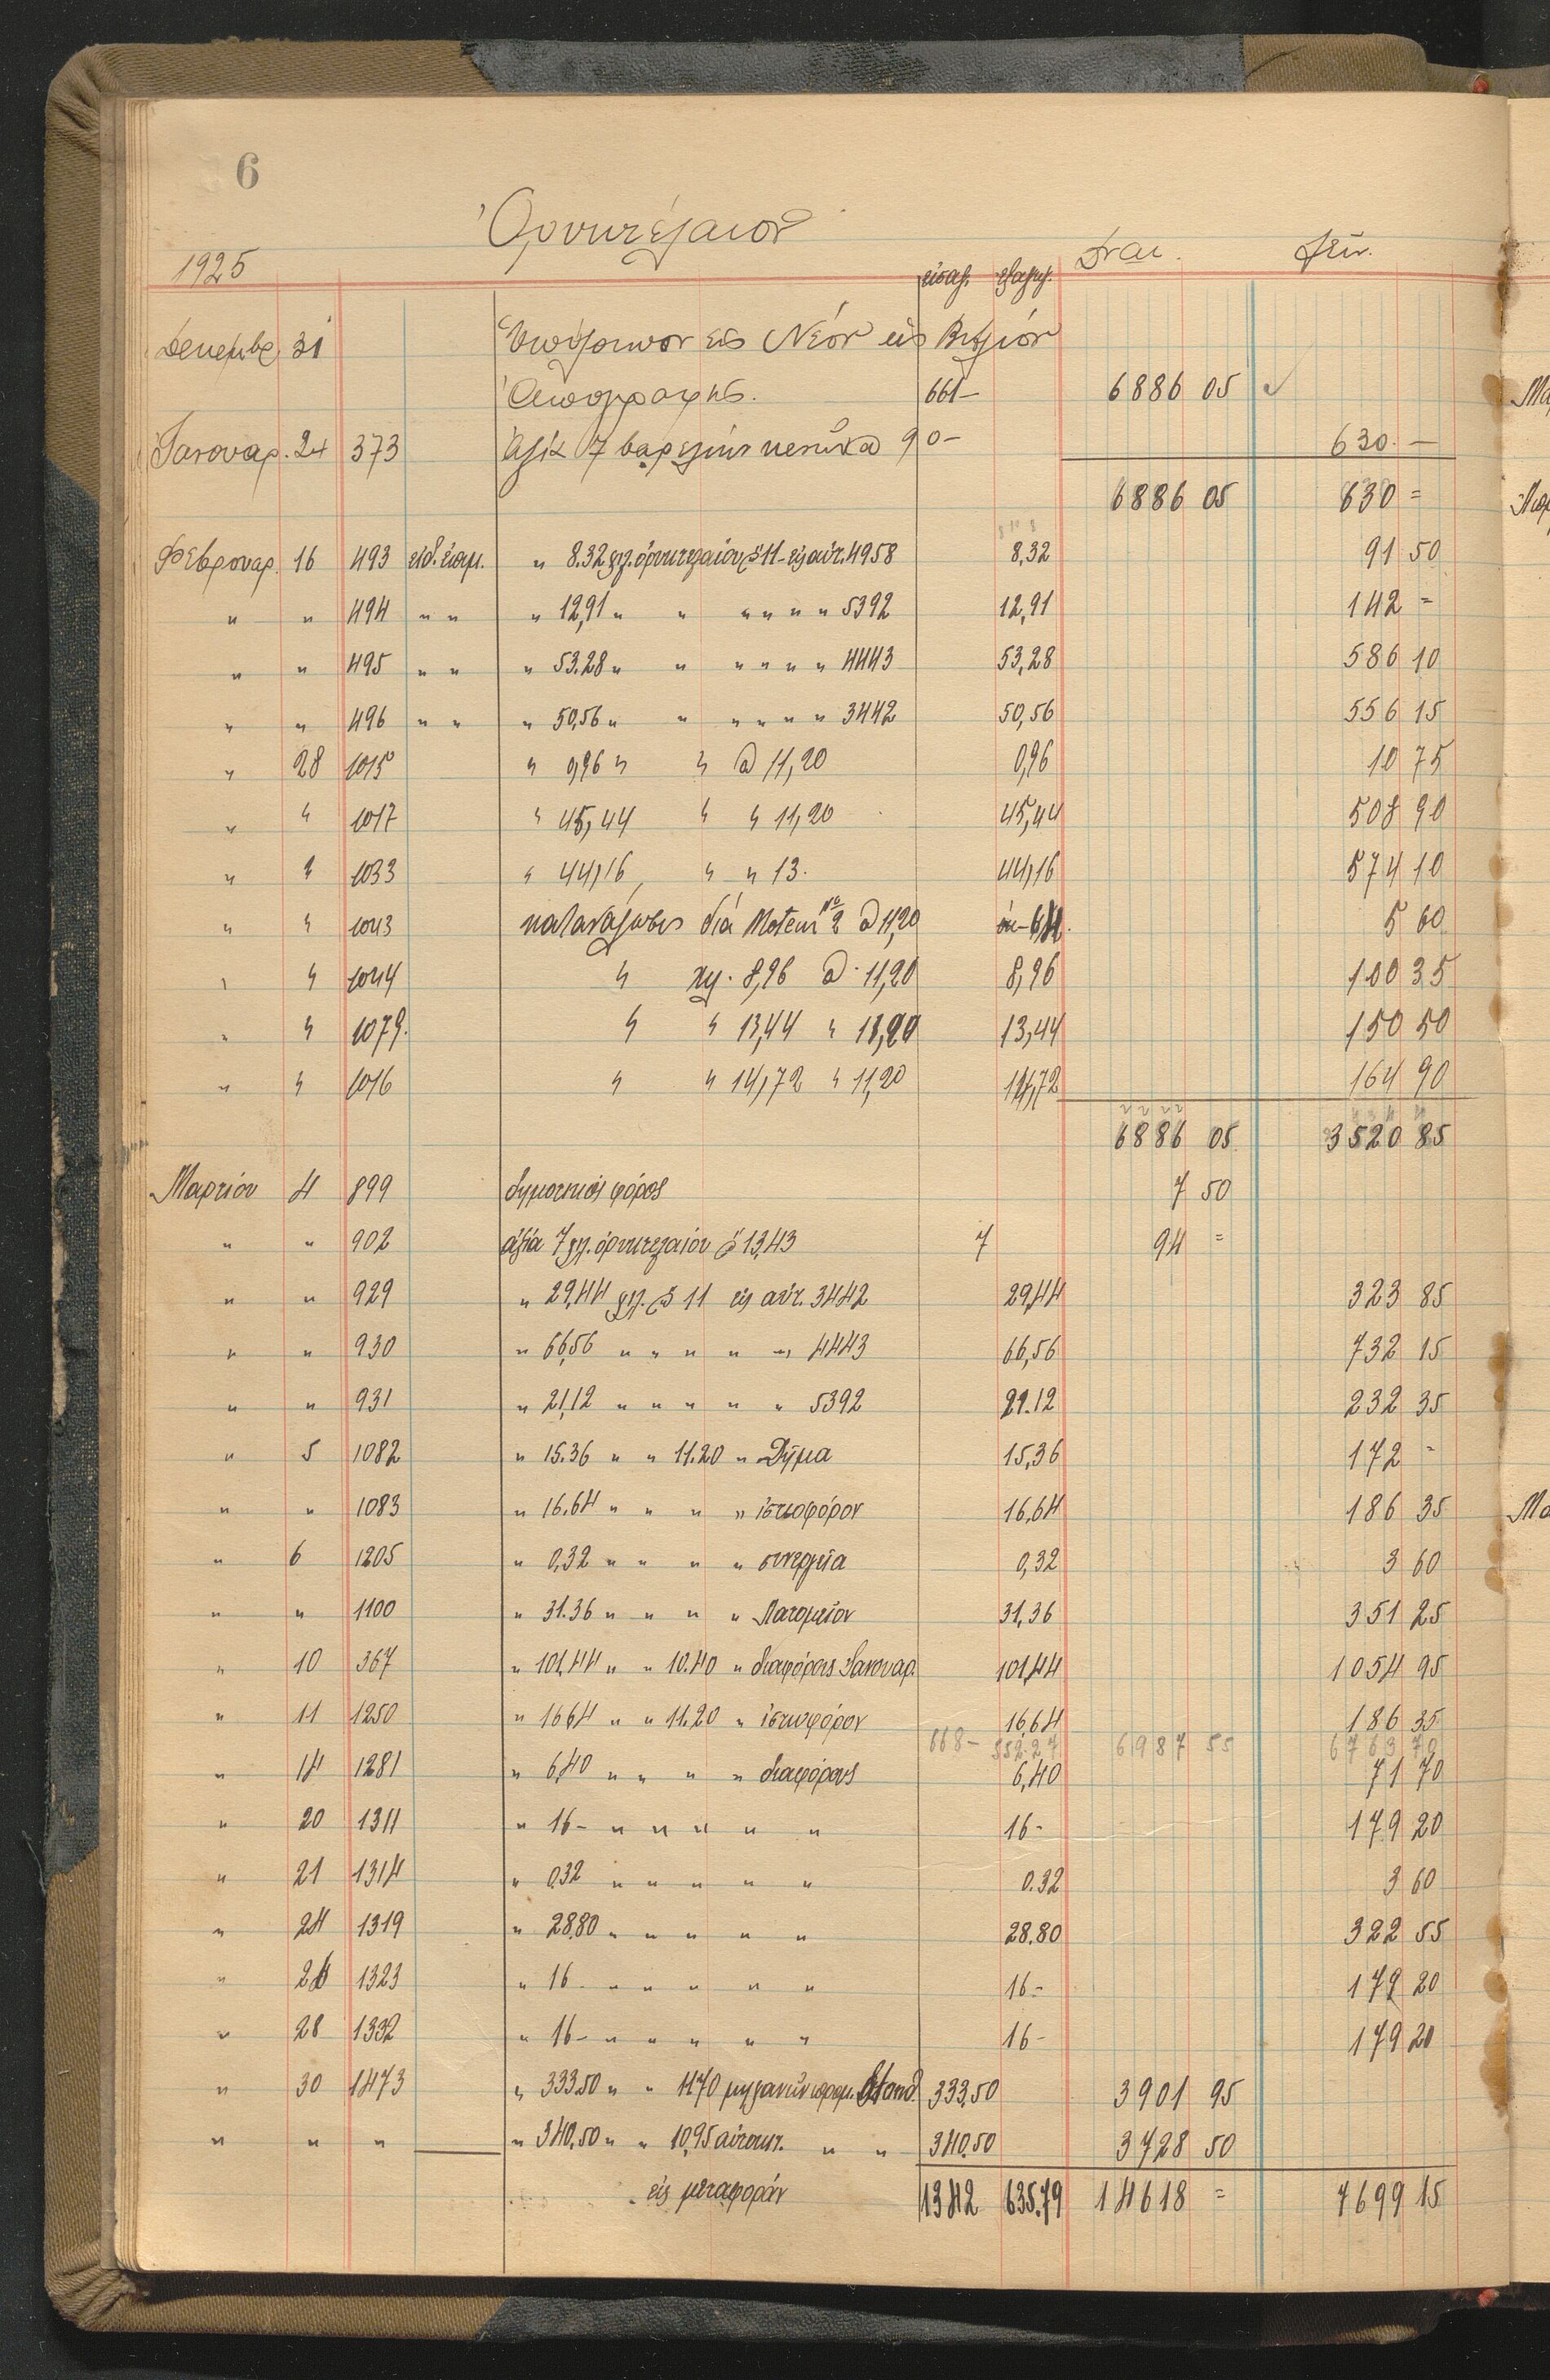 6
Ὀρυκτέλαιον
1925 εἰσαγ. ἐξαγωγ. Δοῦν. Λαβ.
Δεκεμβρ. 31 Ὑπόλοιπον ἐκ Νέον εἰς Βιβλίον
Ἀπογραφῆς. 661— 6886 05
Ἰανουαρ. 24 373 Ἀξία 7 βαρελίων κενῶν @ 90— 630.—
6886 05 630 =
Φεβρουαρ. 16 493 " 8.32 χγ. ὀρυκτελαίου πρὸς 11- εἰς αὐτ. 4958 8,32 91 50
" " 494 " " " 12,91 " " " " " " 5392 12,91 142 =
" " 495 " " " 53.28 " " " " " " 4443 53,28 586 10
" " 496 " " " 50,56 " " " " " " 3442 50,56 556 15
" 28 1015 " 0,96 " " @ 11,20 0,96 10 75
" " 1017 " 45,44 " " 11,20 45,44 508 90
" " 1033 " 44,16, " " 13. 44,16 574 10
" " 1043 κατανάλωσις διὰ Moteur No 2 @ 11,20 5 60
" " 1044 " χγ. 8,96 @ 11,20 8,96 100 35
" " 1079. " " 13,44 " 11,20 13,44 150 50
" " 1016 " " 14,72 " 11,20 14,72 164 90
6886 05 3520 85
Μαρτίου 4 899 δημοτικὸς φόρος 7 50
" " 902 ἀξία 7 χγ. ὀρυκτελαίου πρὸς 13,43 7 94 =
" " 929 " 29,44 χγ. πρὸς 11 εἰς αὐτ. 3442 29,44 323 85
" " 930 " 66,56 " " " " " 4443 66,56 732 15
" " 931 " 21,12 " " " " " 5392 21.12 232 35
" 5 1082 " 15.36 " " 11.20 " Δῆμα 15,36 172 -
" " 1083 " 16.64 " " " " ἱστιοφόρον 16,64 186 35
" 6 1205 " 0,32 " " " " συνεργεῖα 0,32 3 60
" " 1100 " 31.36 " " " " Λατομεῖον 31,36 351 25
" 10 367 " 101,44 " " 10.40 " διαφόρους Ἰανουαρ. 101,44 1054 95
" 11 1250 " 16,64 " " 11.20 " ἱστιοφόρον 16,64 186 35
668— 552.27 6987 55 6763 70
" 14 1281 " 6,40 " " " " διαφόρους 6,40 71 70
" 20 1311 " 16- " " " " " 16- 179 20
" 21 1314 " 0.32 " " " " " 0.32 3 60
" 24 1319 " 28.80 " " " " " 28.80 322 55
" 26 1323 " 16 - " " " " " 16- 179 20
" 28 1332 " 16- " " " " " 16- 179 20
" 30 1473 " 333.50 " " 11.70 μηχανῶν Stand. 333,50 3901 95
" " " " 340,50 " " 10,95 αὐτοκιν. " " 340.50 3728 50
εἰς μεταφοράν 1342 635.79 14618 = 7699 15